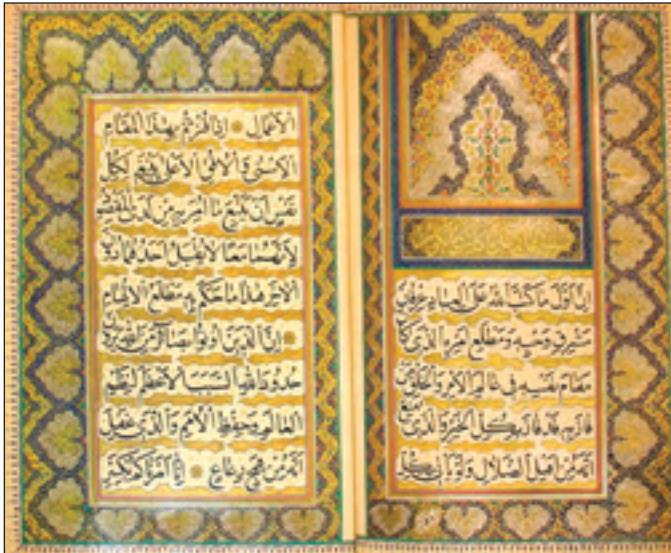 ان اول ما كتب الله على العباد عرفان
مشرق وحيه ومطلع امره الذي كان
مقام نفسه في عالم الامر والخلق من
فاز به قد فاز بكل الخير والذي منع
انه من اهل الضلال ولو يأتي بكل
الاعمال * اذا فزتم بهذا المقام
الاسنى والافق الاعلى ينبغي لكل
نفس ان يتبع ما امر به من لدى المقصود
لانهما معا لا يقبل احدهما دون
الاخر هذا ما حكم به مطلع الالهام
* ان الذين اوتوا بصائر من الله يرون
حدود الله السبب الاعظم لنظم
العالم وحفظ الامم والذي غفل
انه من همج رعاع * انا امرناكم بكسر